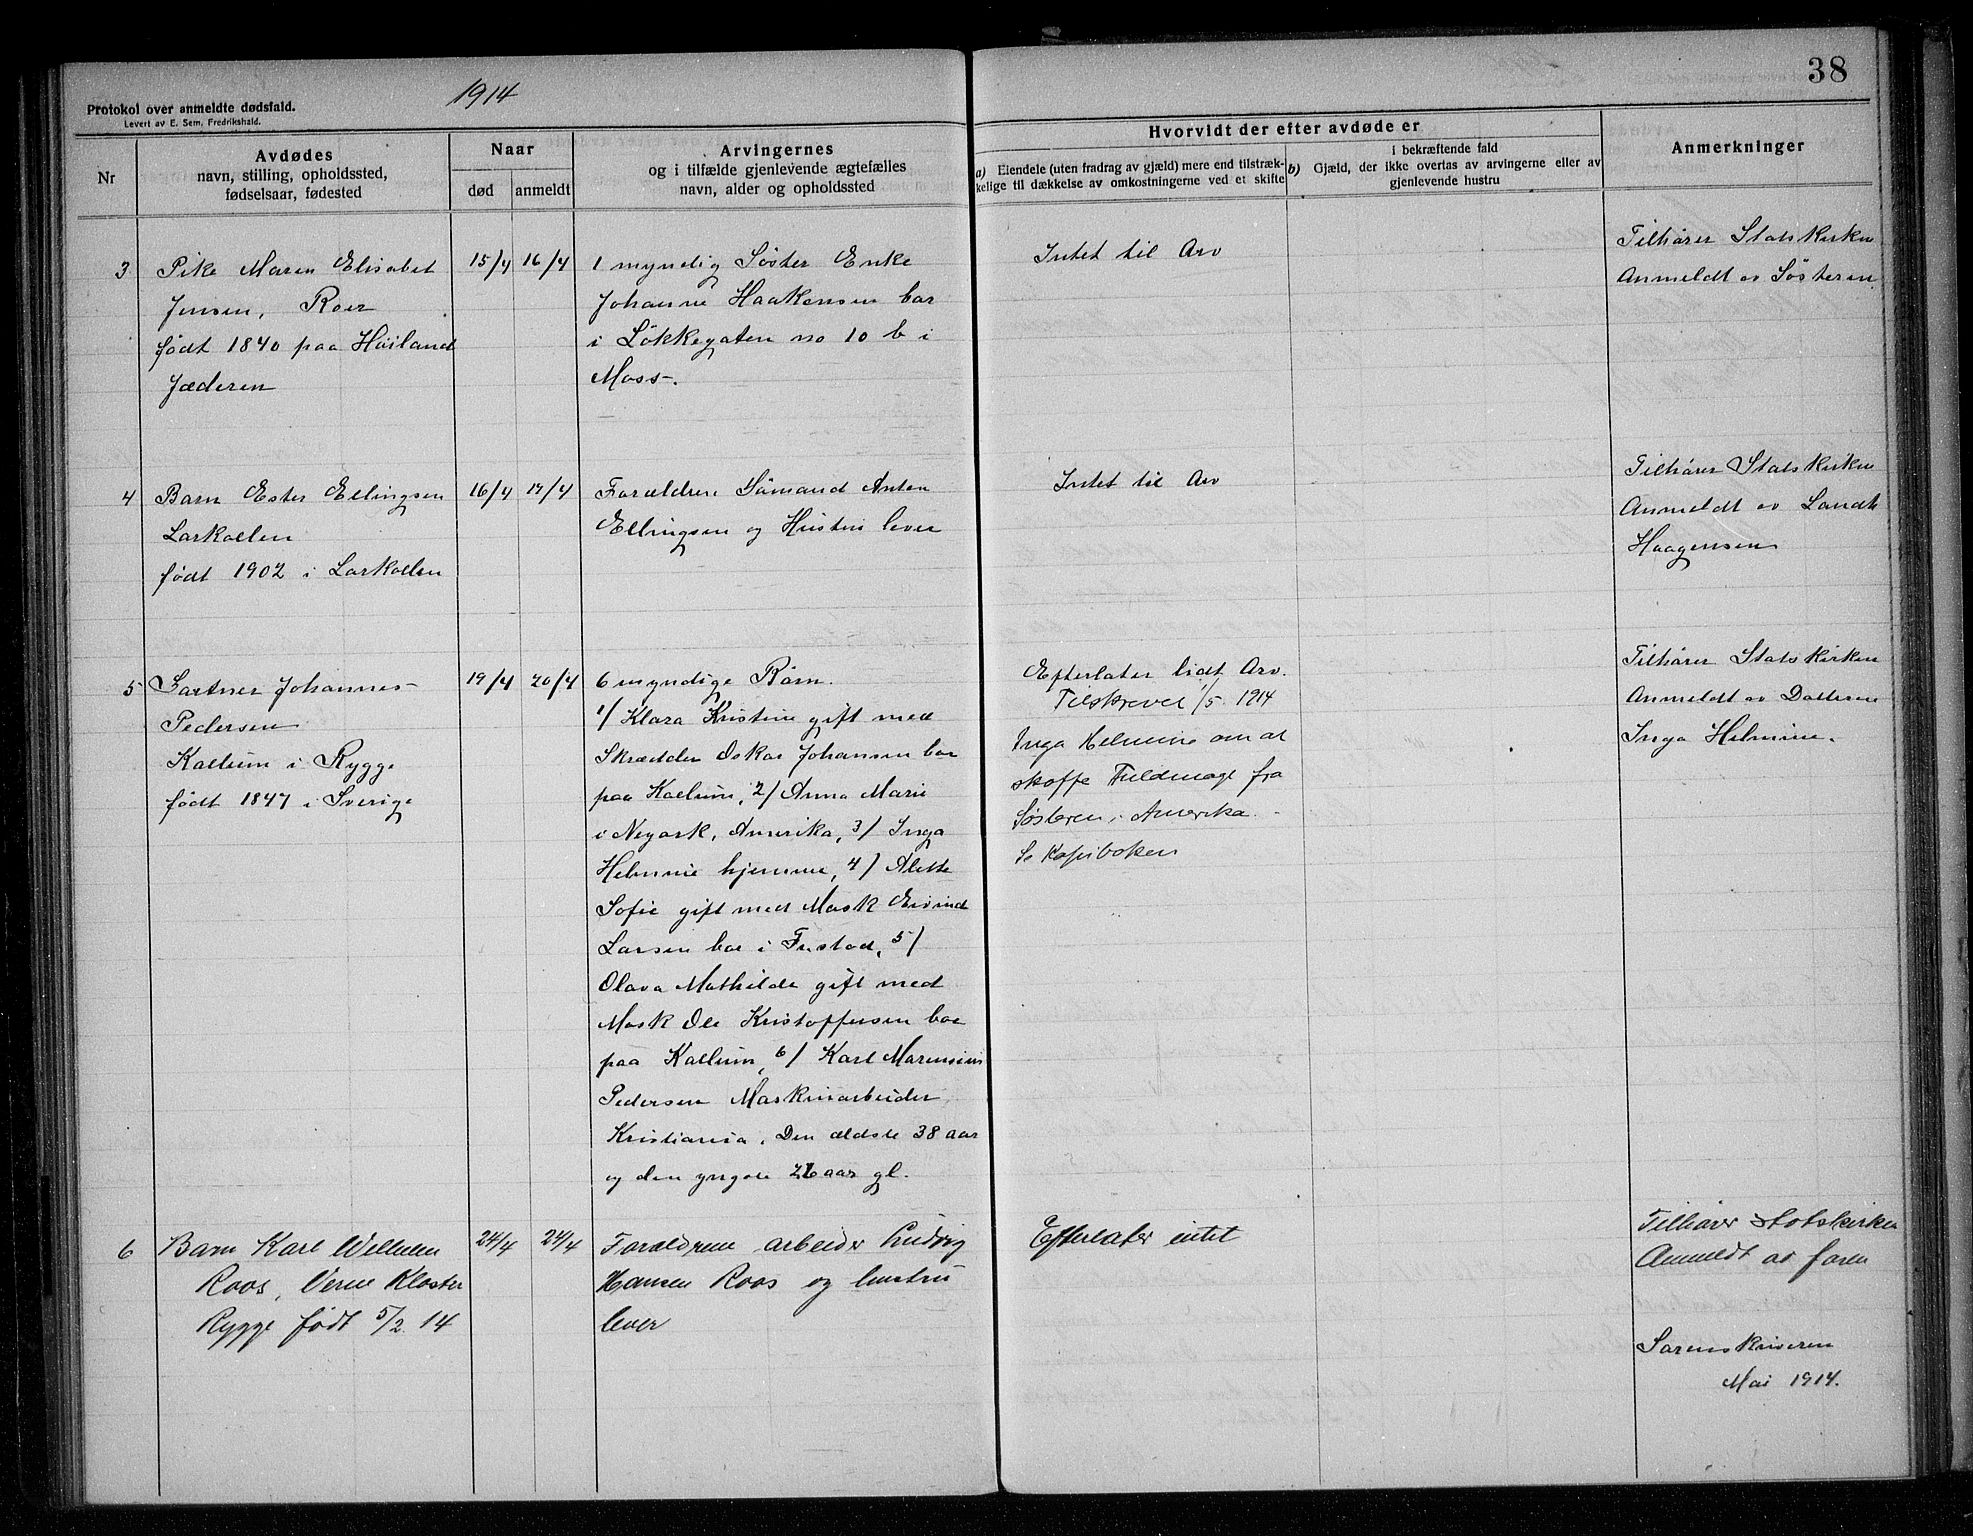 1914
38
Protokol over anmeldte dødsfald.
Levert av E. Sem, Fredrikshald.
Nr
Avdødes
navn, stilling, opholdssted,
fødselsaar, fødested
Naar
død
anmeldt
Arvingernes
og i tilfælde gjenlevende ægtefælles
navn, alder og opholdssted
Hvorvidt der efter avdøde er
a) Eiendele (uten fradrag av gjæld) mere end tilstræk-
kelige til dækkelse av omkostningerne ved et skifte
i bekræftende fald
b) Gjæld, der ikke overtas av arvingerne eller av
gjenlevende hustru
Anmerkninger
3
Pike Maren Elisabet
Jensen, Roer
født 1840 paa Høiland
Jæderen
15/4
16/4
1 myndig Søster Enke
Johanne Haakensen bor
i Løkkegaten no 10 b i
Moss.
Intet til Arv
Tilhører Statskirken
Anmeldt av Søsteren
4
Barn Ester Ellingsen
Larkollen
født 1902 i Larkollen
16/4
17/4
Forældrene Sømand Anton
Ellingsen og Hustru lever
Intet til Arv
Tilhører Statskirken
Anmeldt av Landh
Haagensen
5
Gartner Johannes
Pedersen
Kallum i Rygge
født 1847 i Sverige
19/4
20/4
6 myndige Børn.
1/ Klara Kristine gift med
Skrædder Oskar Johansen bor
paa Kallum, 2/ Anna Marie
i Neyork, Amerika, 3/ Inga
Helmine hjemme, 4/ Alette
Sofie gift med Mask Eivind
Larsen bor i Frestad, 5/
Olava Mathilde gift med
Mask Ole Kristoffersen bor
paa Kallum, 6/ Karl Marensius
Pedersen Maskinarbeider
Kristiania. Den ældste 38 aar
og den yngste 26 aar gl.
Efterlater lidt Arv.
Tilskrevet 1/5 1914
Inga Helmine om at
skaffe Fuldmagt fra
Søsteren i Amerika.
Se Kopiboken
Tilhører Statskirken
Anmeldt av Datteren
Inga Helmine.
6
Barn Karl Wilhelm
Roos, Verne Kloster
Rygge født 5/2 14
24/4
24/4
Forældrene arbeider Ludvig
Hansen Roos og hustru
lever
Efterlater intet
Tilhører statskirken
Anmeldt av faren
Sorenskriveren
Mai 1914.